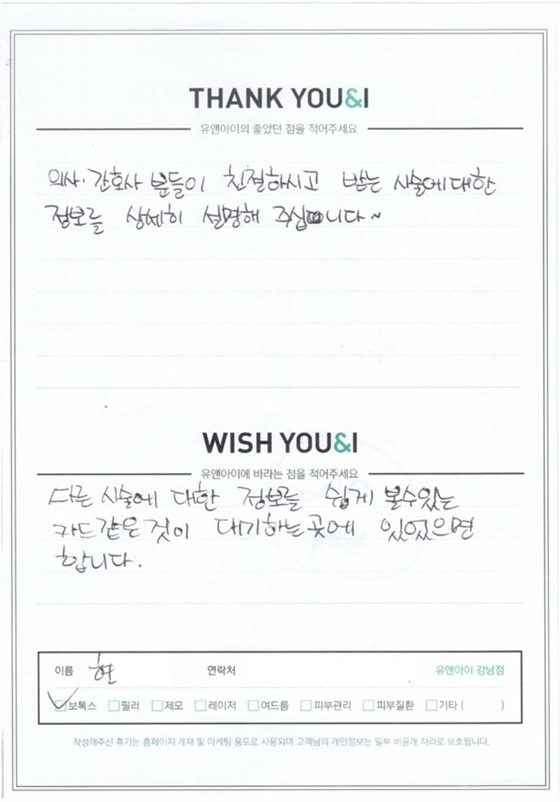 THANK YOU&I
유앤아이의 좋았던 점을 적어주세요
의사·간호사 분들이 친절하시고 받는 시술에 대한
정보를 상세히 설명해 주십니다~
WISH YOU&I
유앤아이에 바라는 점을 적어주세요
다른 시술에 대한 정보를 쉽게 볼수있는
카드같은것이 대기하는곳에 있었으면
합니다.
이름 현 연락처 유앤아이 강남점
보톡스 필러 제모 레이저 여드름 피부관리 피부질환 기타 ( )
작성해주신 후기는 홈페이지 게재 및 마케팅 용도로 사용되며 고객님의 개인정보는 일부 비공개 처리로 보호됩니다.